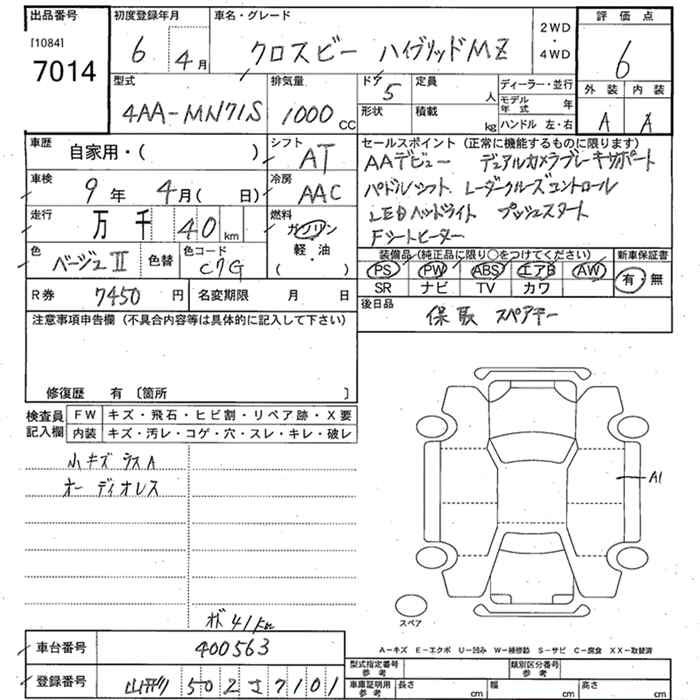 出品番号
[1084]
7014
初度登録年月
6 4月
車名・グレード
クロスビー ハイブリッドMZ
2WD
・
4WD
評価点
6
外装 内装
A A
型式
4AA-MN71S
排気量
1000 cc
ドア
5
定員
人
形状
積載
kg
ディーラー・並行
モデル年式 年
ハンドル 左・右
車歴
自家用・( )
シフト
AT
車検
9年 4月( 日)
冷房
AAC
走行
万 千 40 km
燃料
ガソリン
軽・油
( )
色
ベージュⅡ
色替
色コード
C7G
R券 7450 円
名変期限 月 日
セールスポイント (正常に機能するものに限ります)
AAデビュー デュアルカメラブレーキサポート
パドルシフト レーダークルーズコントロール
LEDヘッドライト プッシュスタート
Fシートヒーター
装備品 (純正品に限り○をつけてください)
PS PW ABS エアB AW
SR ナビ TV カワ
新車保証書
有・無
後日品
保 取 スペアキー
注意事項申告欄 (不具合内容等は具体的に記入して下さい)
修復歴 有 〔箇所 〕
検査員記入欄
FW キズ・飛石・ヒビ割・リペア跡・X要
内装 キズ・汚レ・コゲ・穴・スレ・キレ・破レ
小キズ ラスA
オーディオレス
A1
スペア
A-キズ E-エクボ U-凹み W-補修跡 S-サビ C-腐食 XX-取替済
41km
車台番号 400563
登録番号 502 さ 7101
型式指定番号 参考
類別区分番号 参考
車庫証明用 参考
長さ cm 幅 cm 高さ cm